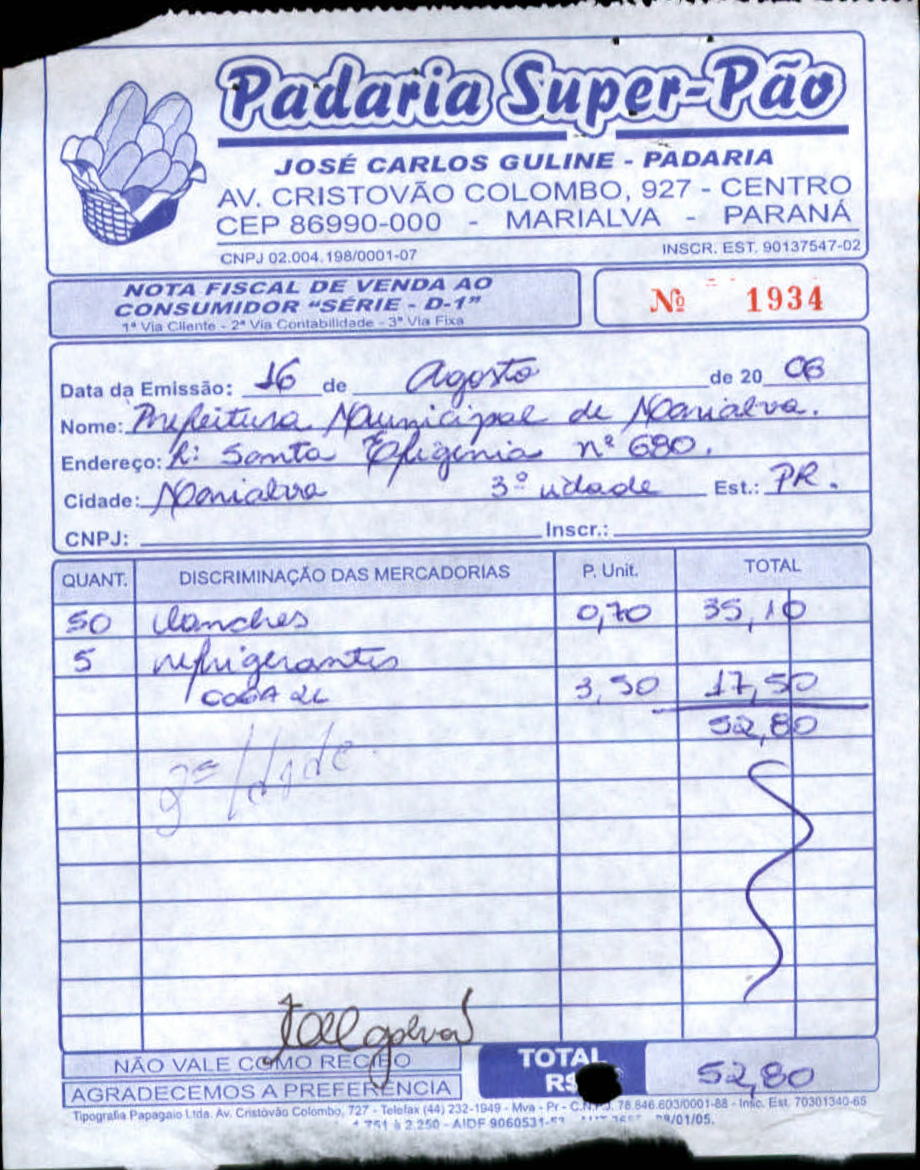 Padaria Super-Pão
JOSÉ CARLOS GULINE - PADARIA
AV. CRISTOVÃO COLOMBO, 927 - CENTRO
CEP 86990-000 - MARIALVA - PARANÁ
CNPJ 02.004.198/0001-07 INSCR. EST. 90137547-02
NOTA FISCAL DE VENDA AO
CONSUMIDOR "SÉRIE - D-1"
1ª Via Cliente - 2ª Via Contabilidade - 3ª Via Fixa
Nº 1934
Data da Emissão: 16 de Agosto de 20 06
Nome: Prefeitura Municipal de Marialva.
Endereço: R: Santa Efigênia nº 680.
Cidade: Marialva 3º idade Est.: PR.
CNPJ: Inscr.:
QUANT. DISCRIMINAÇÃO DAS MERCADORIAS P. Unit. TOTAL
50 lanches 0,70 35,10
5 refrigerantes
COCA 2L 3,50 17,50
52,80
3ª Idade
NÃO VALE COMO RECIBO
AGRADECEMOS A PREFERÊNCIA
TOTAL R$ 52,80
Tipografia Papagaio Ltda. Av. Cristóvão Colombo, 727 - Telefax (44) 232-1949 - Mva - Pr - C.N.P.J. 78.846.603/0001-88 - Insc. Est. 70301340-65
1.751 à 2.250 - AIDF 9060531- /01/05.